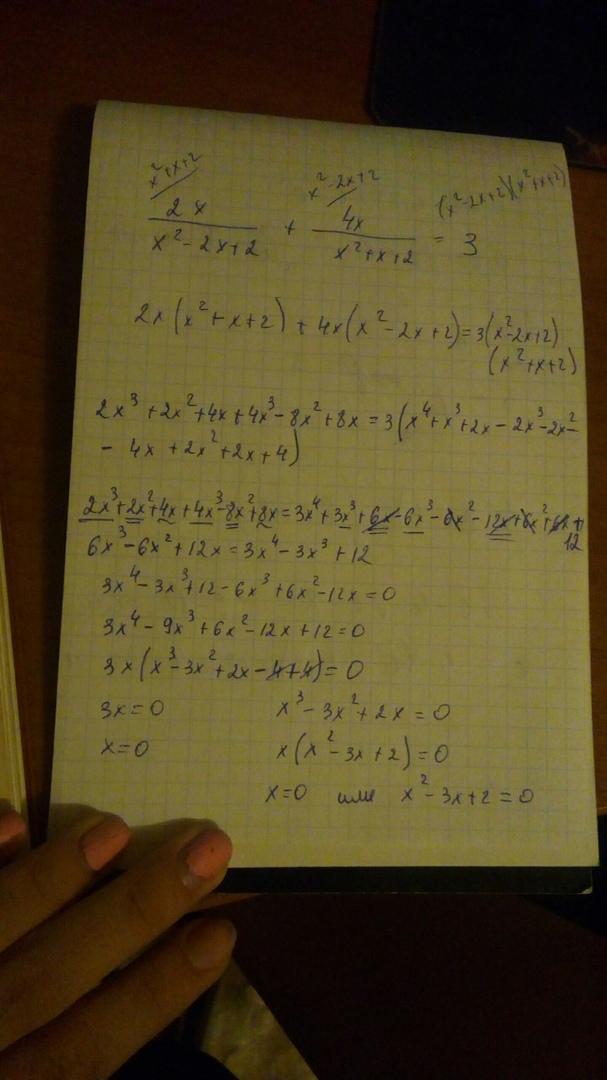 x²+x+2 x²-2x+2 (x²-2x+2)(x²+x+2)
2x/(x²-2x+2) + 4x/(x²+x+2) = 3
2x(x²+x+2) + 4x(x²-2x+2) = 3(x²-2x+2)
(x²+x+2)
2x³+2x²+4x+4x³-8x²+8x = 3(x⁴+x³+2x-2x³-2x²-
- 4x+2x²+2x+4)
2x³+2x²+4x+4x³-8x²+8x = 3x⁴+3x³+6x-6x³-6x²-12x+6x²+6x+
12
6x³-6x²+12x = 3x⁴-3x³+12
3x⁴-3x³+12-6x³+6x²-12x = 0
3x⁴-9x³+6x²-12x+12 = 0
3x(x³-3x²+2x-4+4) = 0
3x = 0 x³-3x²+2x = 0
x = 0 x(x²-3x+2) = 0
x = 0 или x²-3x+2 = 0